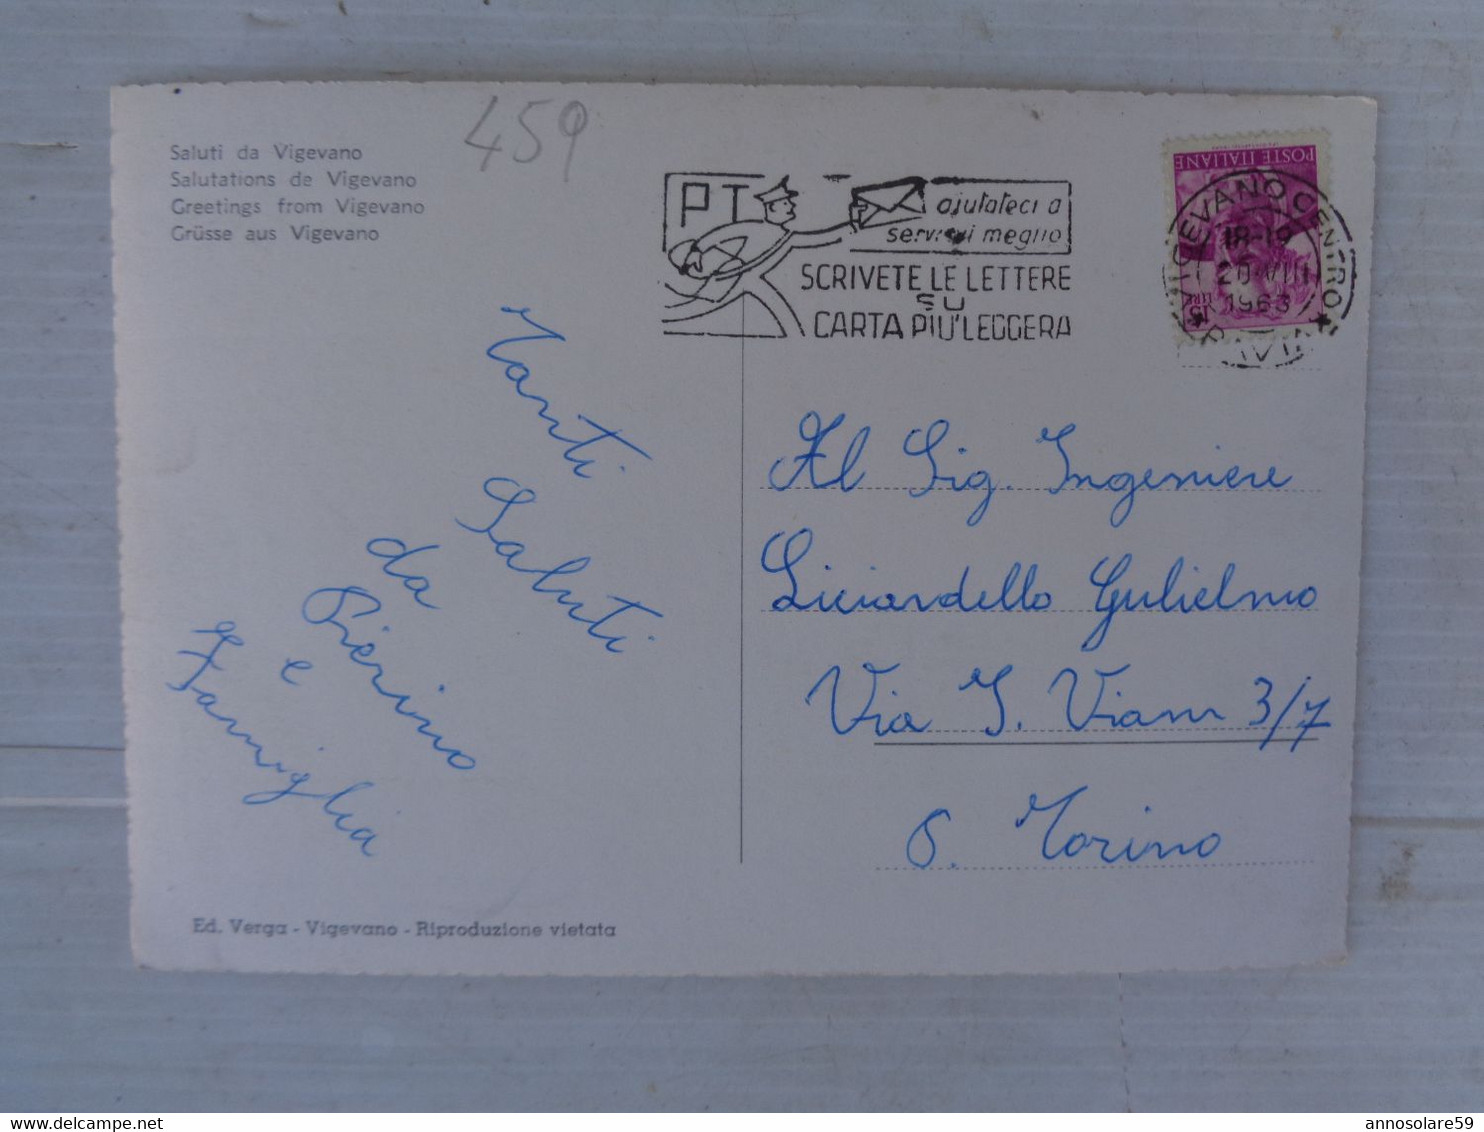 Saluti da Vigevano
Salutations de Vigevano
Greetings from Vigevano
Grüsse aus Vigevano
459
PT
ajutateci a
servirvi meglio
SCRIVETE LE LETTERE
SU
CARTA PIU' LEGGERA
POSTE ITALIANE
LIRE 15
VIGEVANO CENTRO
18-19
1963
PAVIA
Tanti
Saluti
da
Pierino
e
Famiglia
Al Sig. Ingeniere
Liciardello Gulielmo
Via S. Viani 3/7
Torino
Ed. Verga - Vigevano - Riproduzione vietata
annosolare59